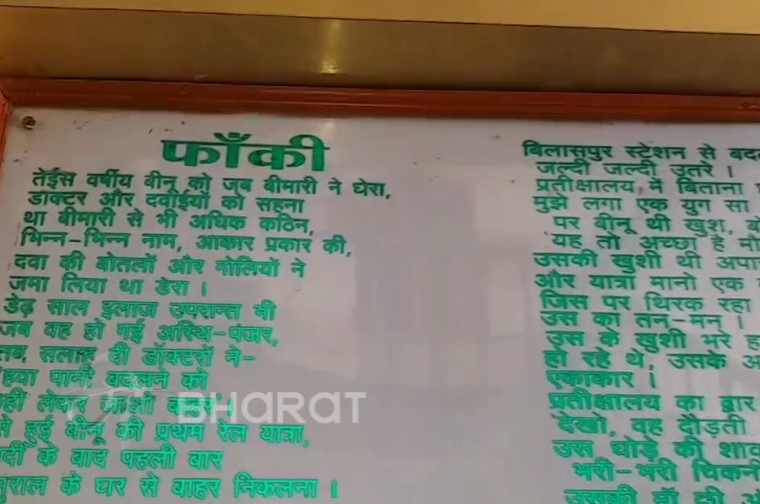 फाँकी
तेईस वर्षीय बीनू को जब बीमारी ने घेरा,
डाक्टर और दवाईयों को सहना
था बीमारी से भी अधिक कठिन,
भिन्न-भिन्न नाम, आकार प्रकार की,
दवा की बोतलों और गोलियों ने
जमा लिया था डेरा ।
डेढ़ साल इलाज उपरान्त भी
जब वह हो गई अस्थि-पंजर,
तब सलाह दी डॉक्टरों ने-
हवा पानी बदलने को
हुई बीनू की प्रथम रेल यात्रा,
के बाद पहली बार
के घर से बाहर निकलना ।
बिलासपुर स्टेशन से
जल्दी जल्दी उतरे ।
प्रतीक्षालय में बिताना
मुझे लगा एक युग सा
पर बीनू थी खुश,
यह तो अच्छा है
उसकी खुशी थी
और यात्रा मानो एक
जिस पर थिरक रहा
उस का तन-मन ।
उस के खुशी भरे
हो रहे थे, उसके
एकाकार ।
प्रतीक्षालय का द्वार
देखो, वह दौड़ती
उस घोड़े की
भरी-भरी
BHARAT